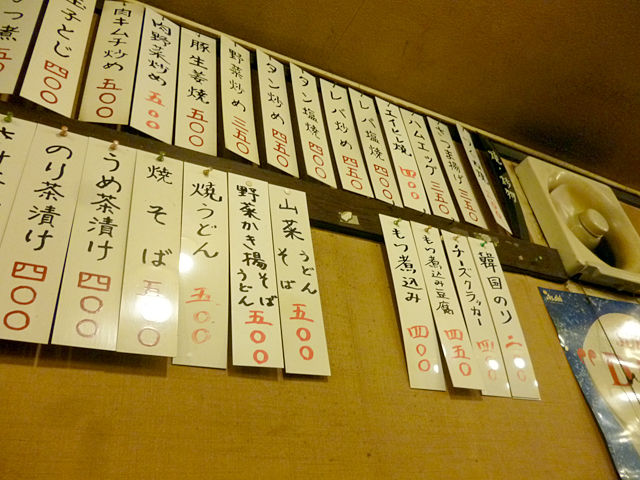 もつ煮 五〇〇
玉子とじ 四〇〇
肉キムチ炒め 五〇〇
肉野菜炒め 五〇〇
豚生姜焼 五〇〇
野菜炒め 三五〇
タン炒め 四五〇
タン塩焼 四〇〇
レバ炒め 四五〇
レバ塩焼 四〇〇
ハムエッグ 三五〇
さつま揚げ 三五〇
のり茶漬け 四〇〇
うめ茶漬け 四〇〇
焼そば 五〇〇
焼うどん 五〇〇
野菜かき揚そばうどん 五〇〇
山菜そばうどん 五〇〇
もつ煮込み 四〇〇
もつ煮込み豆腐 四五〇
チーズクラッカー
韓国のり 二〇〇